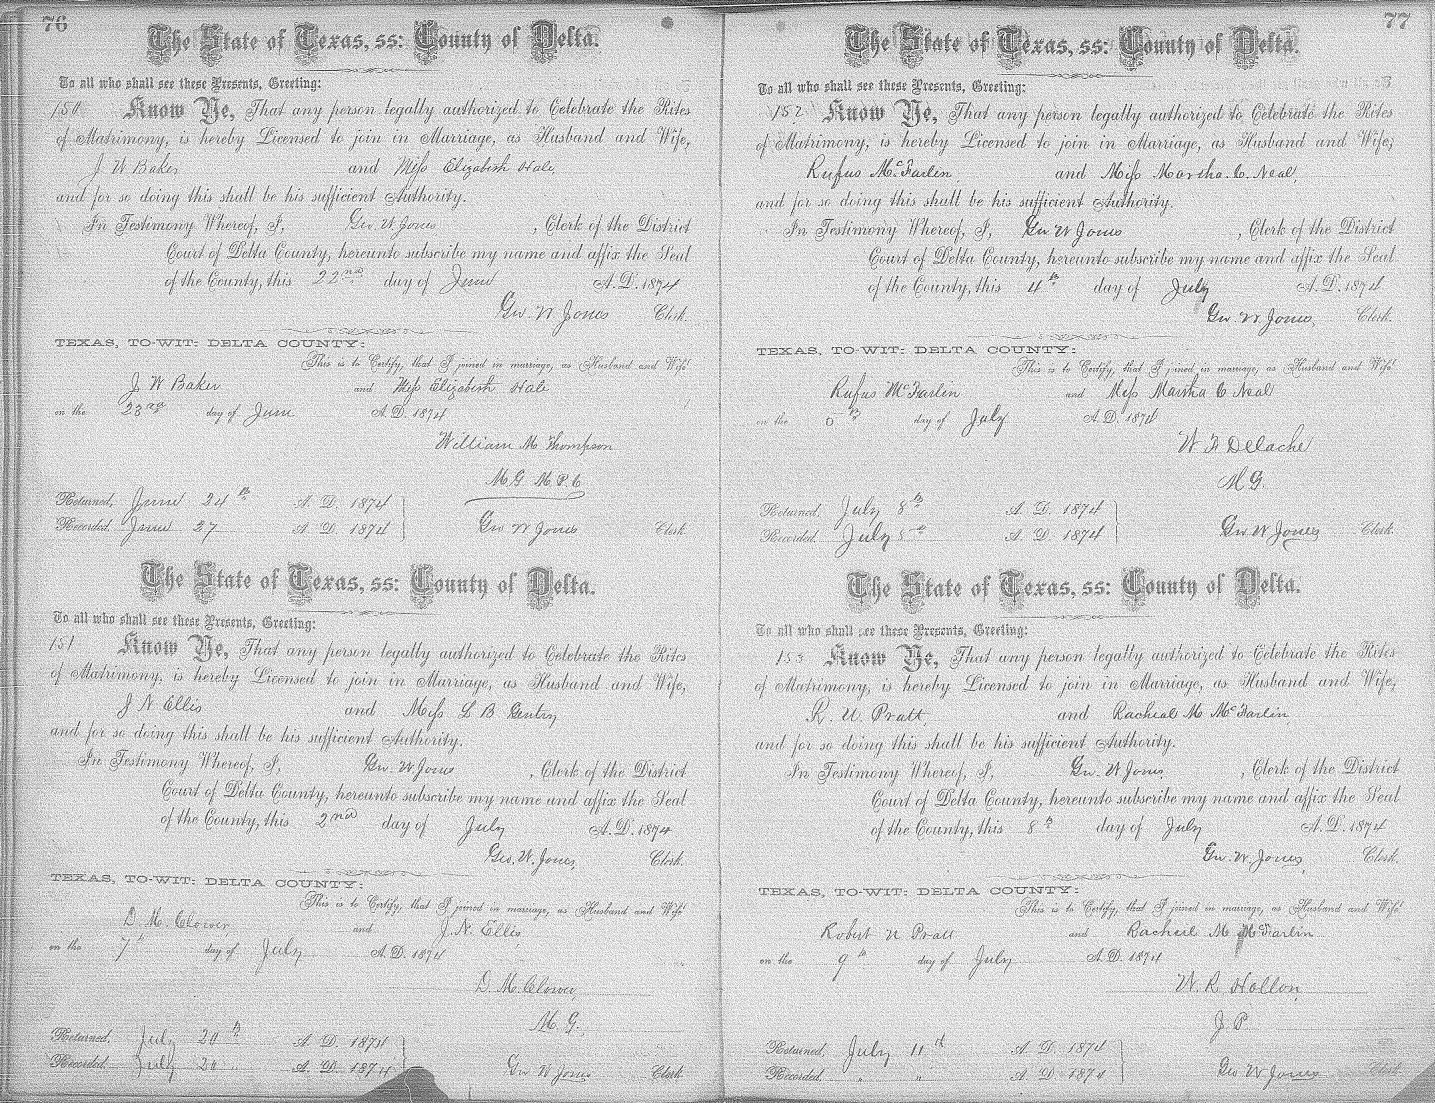 76
The State of Texas, ss: County of Delta.
To all who shall see these Presents, Greeting:
150 Know Ye, That any person legally authorized to Celebrate the Rites
of Matrimony, is hereby Licensed to join in Marriage, as Husband and Wife,
J W Baker and Miss Elizabeth Hale,
and for so doing this shall be his sufficient Authority.
In Testimony Whereof, I, Geo. W. Jones , Clerk of the District
Court of Delta County, hereunto subscribe my name and affix the Seal
of the County, this 22nd day of June A.D. 1874
Geo. W Jones Clerk.
TEXAS, TO-WIT: DELTA COUNTY:
This is to Certify, that I joined in marriage, as Husband and Wife
J W Baker and Miss Elizabeth Hale
on the 23rd day of June A.D. 1874
William M Thompson
M G M P C
Returned, June 24th A. D. 1874
Recorded. June 27 A. D. 1874 Geo W Jones Clerk
The State of Texas, ss: County of Delta.
To all who shall see these Presents, Greeting:
151 Know Ye, That any person legally authorized to Celebrate the Rites
of Matrimony, is hereby Licensed to join in Marriage, as Husband and Wife,
J N Ellis and Miss L B Gentry
and for so doing this shall be his sufficient Authority.
In Testimony Whereof, I, Geo. W Jones , Clerk of the District
Court of Delta County, hereunto subscribe my name and affix the Seal
of the County, this 2nd day of July A.D. 1874
Geo. W. Jones, Clerk.
TEXAS, TO-WIT: DELTA COUNTY:
This is to Certify, that I joined in marriage, as Husband and Wife
D. M. Clower and J. N. Ellis
on the 7th day of July A.D. 1874
D. M. Clower,
M. G.
Returned, July 20th A. D. 1874
Recorded. July 20 " A. D. 1874 Geo W Jones Clerk
77
The State of Texas, ss: County of Delta.
To all who shall see these Presents, Greeting:
152 Know Ye, That any person legally authorized to Celebrate the Rites
of Matrimony, is hereby Licensed to join in Marriage, as Husband and Wife,
Rufus McFarlin and Miss Marsha. C. Neal,
and for so doing this shall be his sufficient Authority.
In Testimony Whereof, I, Geo W Jones , Clerk of the District
Court of Delta County, hereunto subscribe my name and affix the Seal
of the County, this 4th day of July A.D. 1874
Geo W Jones, Clerk.
TEXAS, TO-WIT: DELTA COUNTY:
This is to Certify, that I joined in marriage, as Husband and Wife
Rufus McFarlin and Miss Marsha C Neal
on the 5th day of July A.D. 1874
W F Delache
M G.
Returned, July 8th A. D. 1874
Recorded. July 8th A. D. 1874 Geo W Jones Clerk.
The State of Texas, ss: County of Delta.
To all who shall see these Presents, Greeting:
153 Know Ye, That any person legally authorized to Celebrate the Rites
of Matrimony, is hereby Licensed to join in Marriage, as Husband and Wife,
R. U. Pratt, and Racheal M McFarlin
and for so doing this shall be his sufficient Authority.
In Testimony Whereof, I, Geo. W Jones , Clerk of the District
Court of Delta County, hereunto subscribe my name and affix the Seal
of the County, this 8th day of July A.D. 1874
Geo. W. Jones, Clerk.
TEXAS, TO-WIT: DELTA COUNTY:
This is to Certify, that I joined in marriage, as Husband and Wife
Robert U Pratt and Racheel M McFarlin
on the 9th day of July A.D. 1874
W. R Hollon,
J P.
Returned, July 11th A. D. 1874
Recorded. " " A. D. 1874 Geo W Jones Clerk.